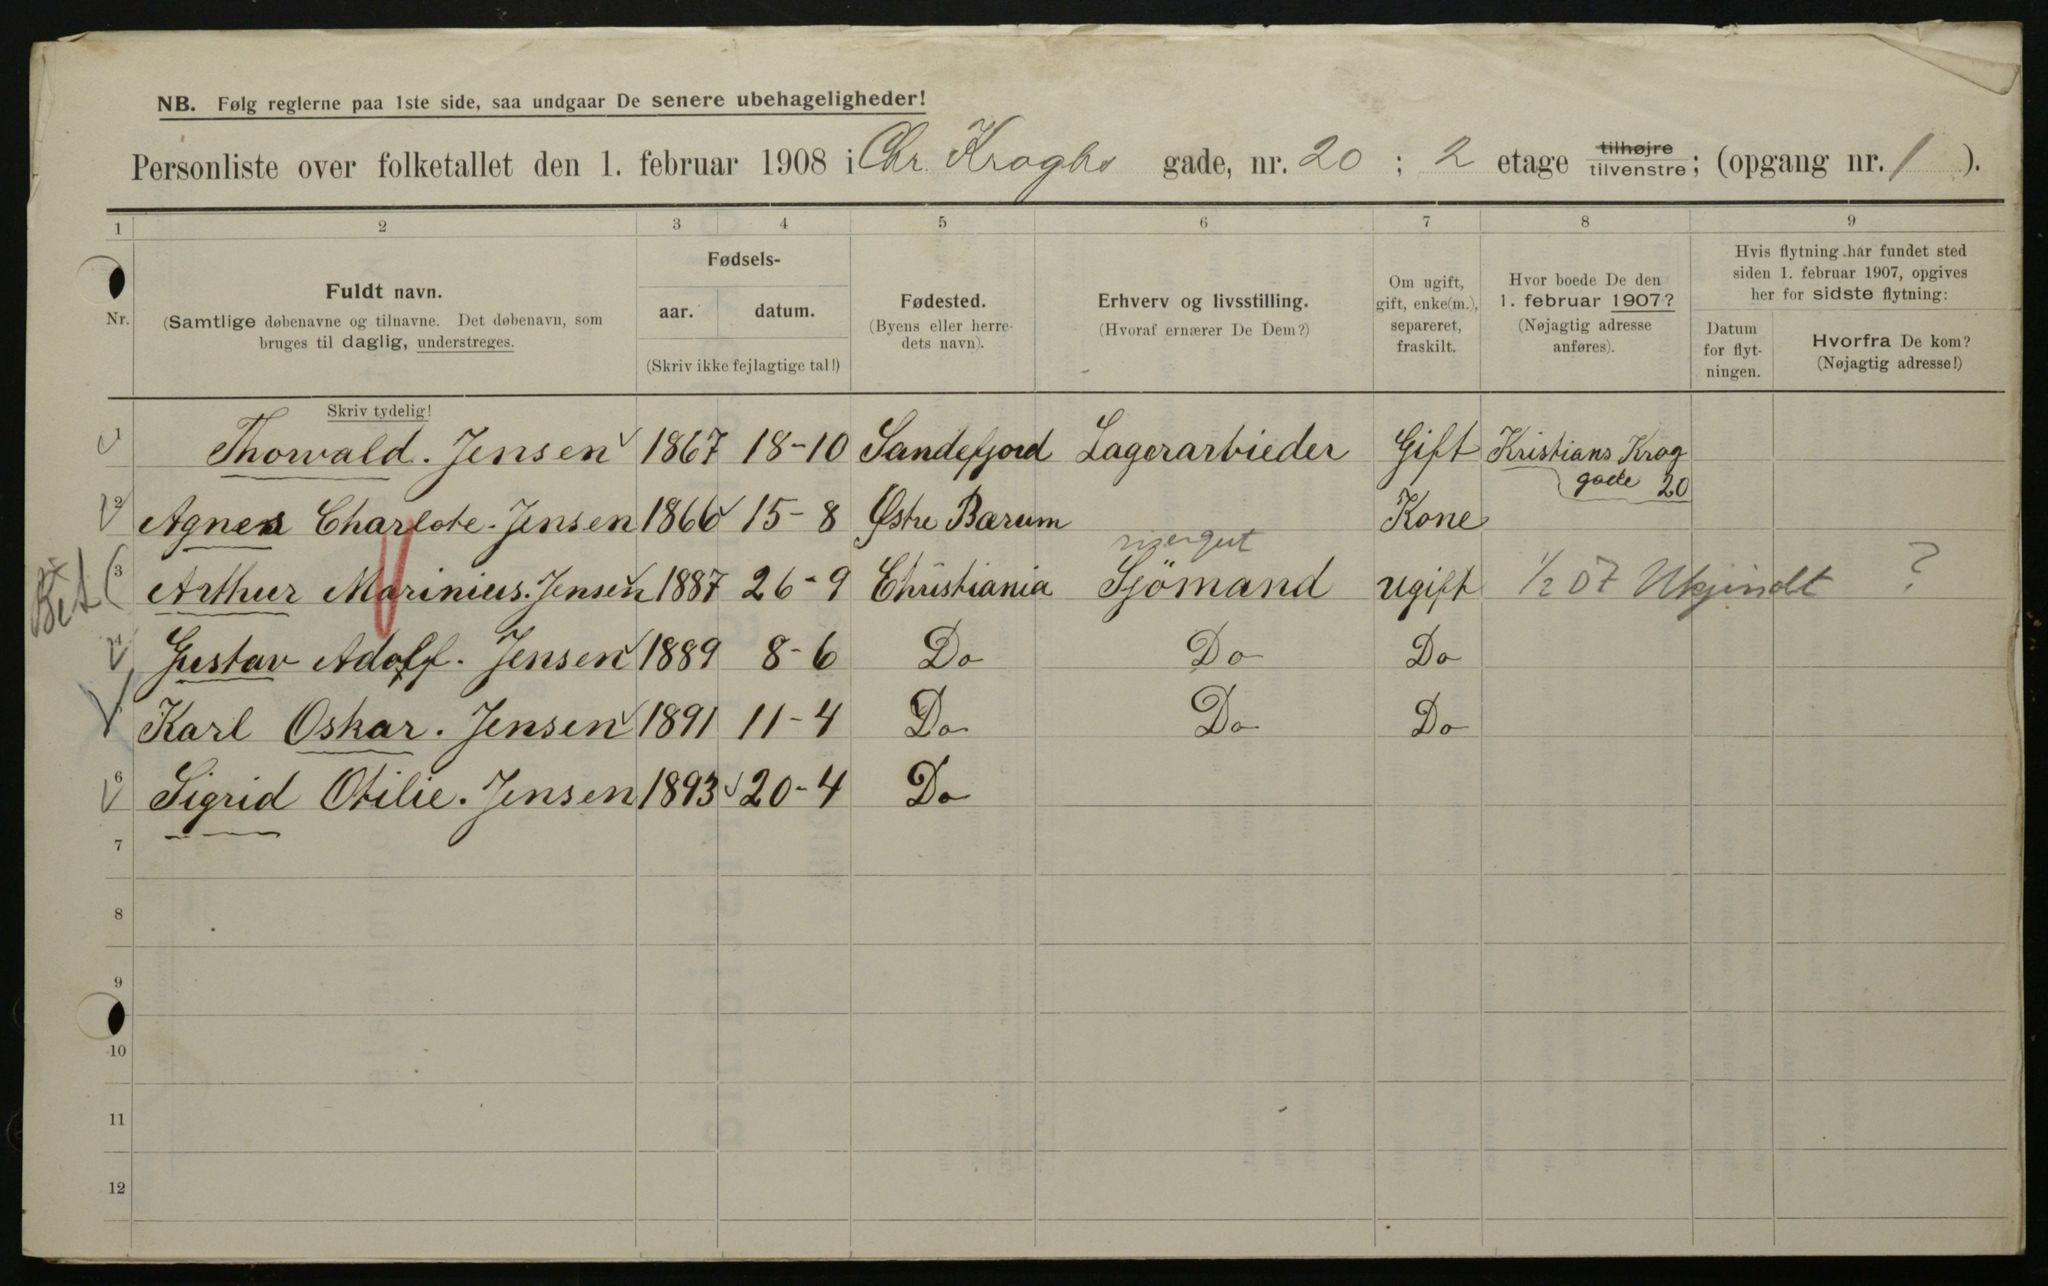 NB. Følg reglerne paa 1ste side, saa undgaar De senere ubehageligheder!
Personliste over folketallet den 1. februar 1908 i Chr. Kroghs gade, nr. 20 ; 2 etage tilhøjre tilvenstre ; (opgang nr. 1 ).
1 2 3 4 5 6 7 8 9
Nr.
Fuldt navn.
(Samtlige døbenavne og tilnavne. Det døbenavn, som
bruges til daglig, understreges.
Fødsels-
aar. datum.
(Skriv ikke fejlagtige tal!)
Fødested.
(Byens eller herre-
dets navn).
Erhverv og livsstilling.
(Hvoraf ernærer De Dem?)
Om ugift,
gift, enke(m.),
separeret,
fraskilt.
Hvor boede De den
1. februar 1907?
(Nøjagtig adresse
anføres).
Hvis flytning har fundet sted
siden 1. februar 1907, opgives
her for sidste flytning:
Datum
for flyt-
ningen.
Hvorfra De kom?
(Nøjagtig adresse!)
Skriv tydelig!
1 Thorvald. Jensen 1867 18-10 Sandefjord Lagerarbieder Gift Kristians Krog
gade 20
2 Agnes Charlote. Jensen 1866 15-8 Østre Bærum Kone
Bet 3 Arthur Marinius. Jensen 1887 26-9 Christiania Sjömand ugift 1/2 07 Ukjendt ?
4 Gustav Adolf. Jensen 1889 8-6 Do Do Do
Karl Oskar. Jensen 1891 11-4 Do Do Do
6 Sigrid Otilie. Jensen 1893 20-4 Do
7
8
9
10
11
12